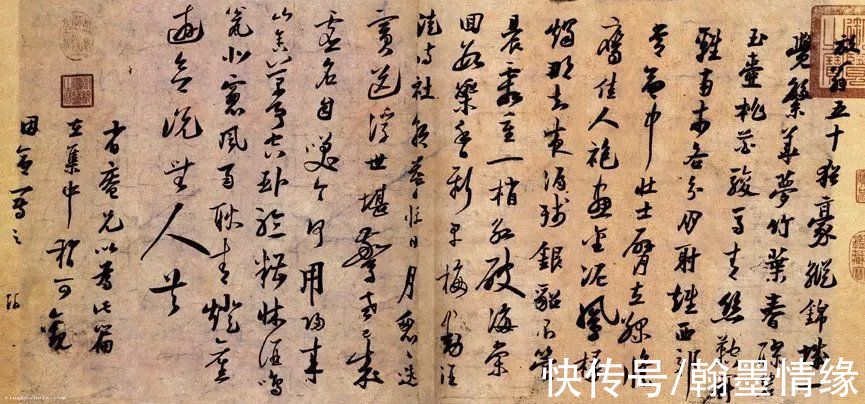 放翁五十猶豪縱錦城一
覺繁華夢竹葉春醪碧
玉壺桃花駿馬青絲鞚鬥
雞南市各分朋射雉西郊
常命中壯士臂立綠絛
鷹佳人袍畫金泥鳳椽
燭那知夜漏殘銀貂不管
晨霜重一梢紅破海棠
回數蕊香新早梅動酒
徒詩社朝暮忙日月匆匆迭
賓送浮世堪驚老已成
虛名自笑今何用歸來
山舍萬事空臥聽糟床酒鳴
甕北窗風雨耿青燈舊
遊欲說無人共
省庵兄以為此篇
在集中稍可觀
因命寫之 游
快传号/翰墨情缘